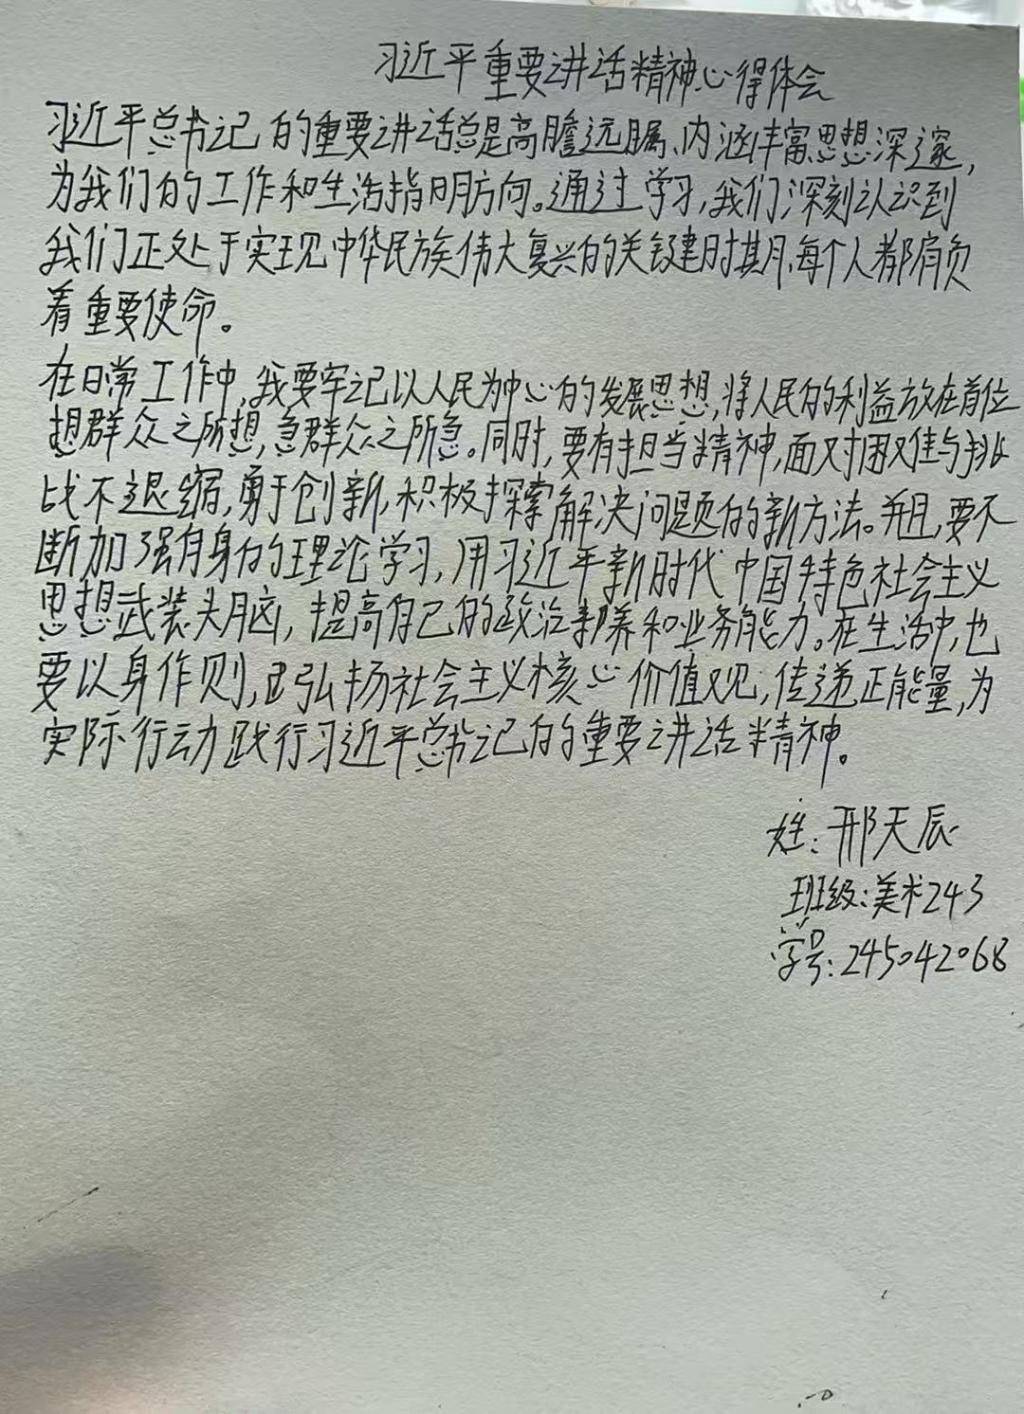 习近平重要讲话精神心得体会
习近平总书记的重要讲话总是高瞻远瞩、内涵丰富思想深邃,
为我们的工作和生活指明方向。通过学习,我们深刻认识到
我们正处于实现中华民族伟大复兴的关键时期,每个人都肩负
着重要使命。
在日常工作中,我要牢记以人民为中心的发展思想,将人民的利益放在首位
想群众之所想,急群众之所急。同时,要有担当精神,面对困难与挑
战不退缩,勇于创新,积极探索解决问题的新方法。并且,要不
断加强自身的理论学习,用习近平新时代中国特色社会主义
思想武装头脑,提高自己的政治素养和业务能力。在生活中,也
要以身作则,弘扬社会主义核心价值观,传递正能量,为
实际行动践行习近平总书记的重要讲话精神。
姓:邢天辰
班级:美术243
学号:245042068